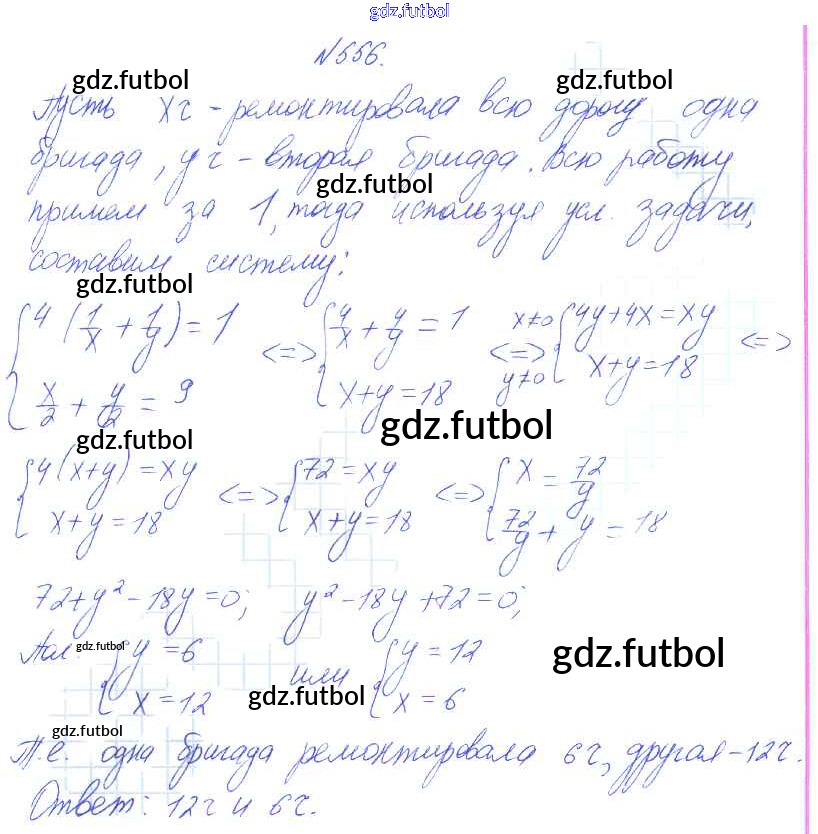 gdz.futbol
N556.
gdz.futbol gdz.futbol
Пусть x ч - ремонтировала всю дорогу одна
бригада, y ч - вторая бригада. Всю работу
gdz.futbol
примем за 1, тогда используя усл. задачи,
составим систему:
gdz.futbol
{ 4 (1/x + 1/y) = 1 <=> { 4/x + 4/y = 1 x≠0 <=> y≠0 { 4y+4x=xy <=>
{ x/2 + y/2 = 9 { x+y=18 { x+y=18
gdz.futbol
gdz.futbol
{ 4(x+y)=xy <=> { 72=xy <=> { x = 72/y
{ x+y=18 { x+y=18 { 72/y + y = 18
72+y²-18y=0; y²-18y+72=0;
gdz.futbol
{ y=6 или { y=12 gdz.futbol
{ x=12 gdz.futbol { x=6
gdz.futbol
Т.е. одна бригада ремонтировала 6ч, другая-12ч.
Ответ: 12ч и 6ч.